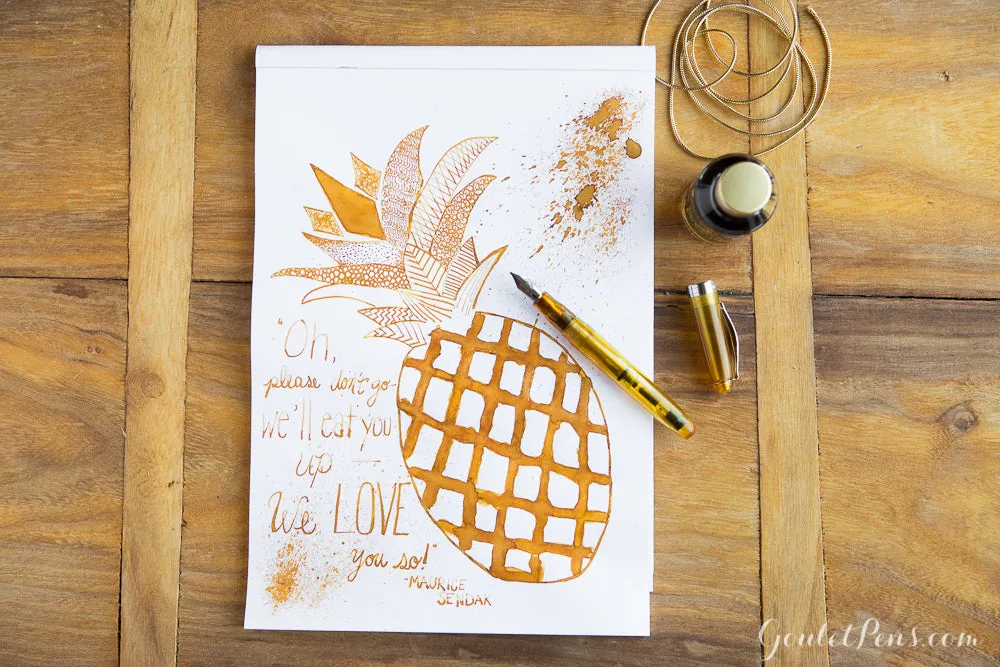 "Oh,
please don't go-
we'll eat you
up —
We LOVE
you so!"
-MAURICE
SENDAK
GouletPens.com